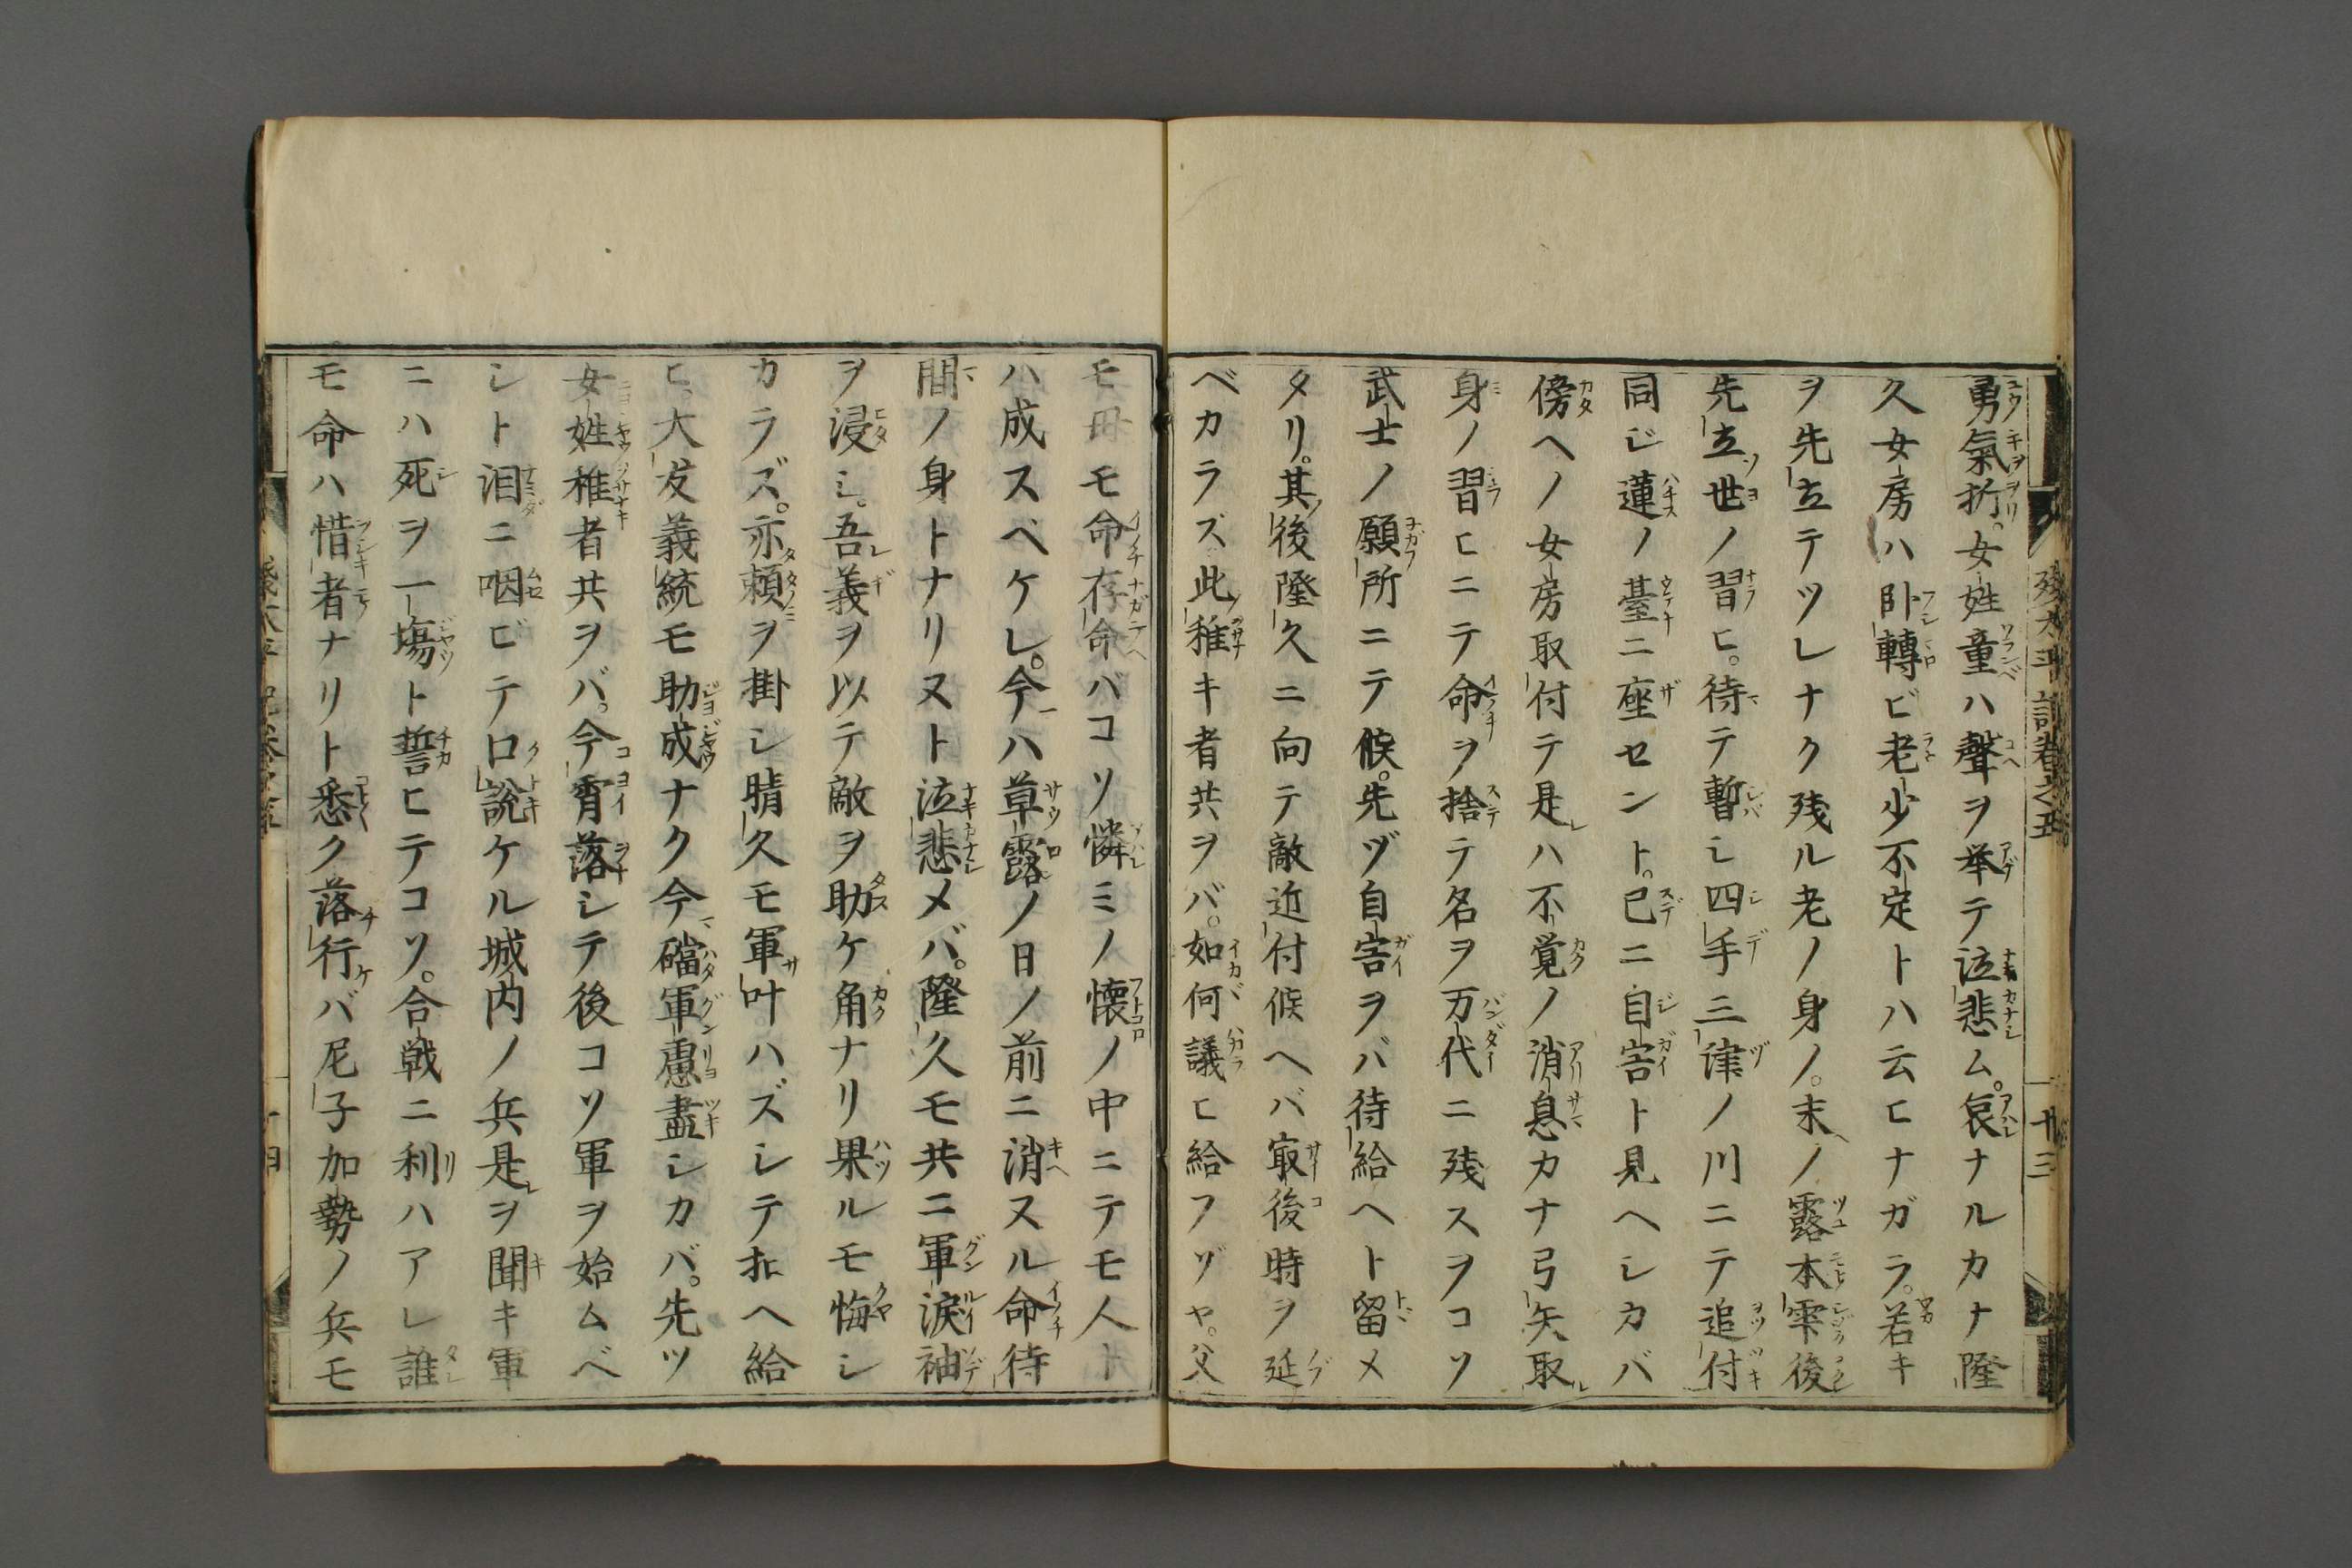 勇氣折。女姓童ハ聲ヲ挙テ泣悲ム。哀ナルカナ隆
久女房ハ卧轉ビ老少不定トハ云ヒナガラ。若キ
ヲ先立テツレナク残ル老ノ身ノ。末ノ露本雫後
先立世ノ習ヒ。待テ暫シ四手三津ノ川ニテ追付
同ジ蓮ノ臺ニ座セント。已ニ自害ト見ヘシカバ
傍ヘノ女房取付テ是ハ不覚ノ消息カナ弓矢取
身ノ習ヒニテ命ヲ捨テ名ヲ万代ニ残スヲコソ
武士ノ願所ニテ候。先ヅ自害ヲバ待給ヘト留メ
タリ。其後隆久ニ向テ敵近付候ヘバ寂後時ヲ延
ベカラズ此稚キ者共ヲバ。如何議ヒ給フヅヤ。父
モ母モ命存命バコソ憐ミノ懐ノ中ニテモ人ト
ハ成スベケレ。今ハ草露ノ日ノ前ニ消ヌル命待
間ノ身トナリヌト泣悲メバ。隆久モ共ニ軍淚袖
ヲ浸シ。吾義ヲ以テ敵ヲ助ケ角ナリ果ルモ悔シ
カラズ。亦頼ヲ掛シ晴久モ軍叶ハズシテ扣ヘ給
ヒ。大友義統モ助成ナク今礑軍慮盡シカバ。先ツ
女姓稚者共ヲバ。今宵落シテ後コソ軍ヲ始ムベ
シト泪ニ咽ビテ口說ケル城内ノ兵是ヲ聞キ軍
ニハ死ヲ一塲ト誓ヒテコソ。合戦ニ利ハアレ誰
モ命ハ惜者ナリト悉ク落行バ尼子加勢ノ兵モ
残太平記巻之五
十三